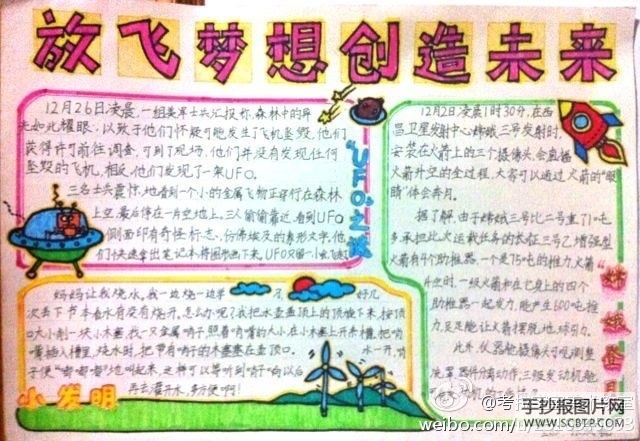 放飞梦想创造未来
12月26日凌晨,一组美军士兵汇报称,森林中的异
光如此耀眼,以致于他们怀疑可能发生了飞机坠毁,他们
获得许可前往调查,可到了现场,他们并没有发现任何
坠毁的飞机,相反,他们发现了一架UFO。
三名士兵震惊地看到一个小的金属飞物正穿行在森林
上空,最后停在一片空地上。三人偷偷靠近,看到UFO
侧面印有奇怪标志,仿佛埃及的象形文字,他
们快速拿出笔记本将图形画下来。UFO只留一小会飞走了
UFO之谜
12月2日凌晨1时30分,在西
昌卫星发射中心嫦娥三号发射时,
安装在火箭上的三个摄像头,会直播
火箭升空的全过程,大家可以通过火箭的“眼
睛”体会奔月。
据了解,由于嫦娥三号比二号重了1吨
多,承担此次运载任务的长征三号乙增强型
火箭有4个助推器,一个是75吨的推力,火箭
升空时,一级火箭和在它身上的四个
助推器一起发力,能产生600吨推
力,足足能让火箭摆脱地球引力。
此外,仪器舱摄像头可观测整
流罩、器件分离动作,三级发动机舱
嫦娥奔月
妈妈让我烧水。我一边烧一边羊 好几
次丢下节本看水有没有烧开。怎么办呢?我把水壶盖顶上的顶旋下来,按顶
口大小削一块小木塞,找一只金属哨子,照着哨嘴的大小在小木塞上开条槽,把哨
嘴插入槽里,烧水时,把带有哨子的木塞塞在壶顶口。水一开,哨
子便“嘟嘟嘟”地叫起来,这样可以等听到哨子响以后
再去灌开水,多方便啊!
小发明
手抄报图片网
WWW.SCBTP.COM
weibo.com/